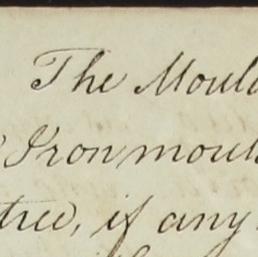 The Mould
Ironmould
tree, if any